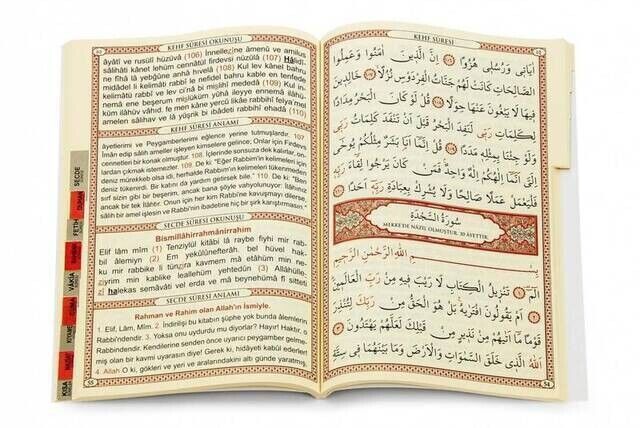 KEHF SÛRESİ OKUNUŞU
âyâtî ve rusulî hüzüvâ (106) İnnellezîne âmenû ve amilus
sâlihâti kânet lehüm cennâtül firdevsi nüzülâ (107) Hâlidî-
ne fîhâ lâ yebğûne anhâ hıvelâ (108) Kul lev kânel bahru
midâdel li kelimâti rabbî le nefidel bahru kable en tenfede
kelimâtü rabbî ve lev ci'nâ bi mislihî mededâ (109) Kul in-
nemâ ene beşerum mislüküm yûhâ ileyye ennemâ ilâhü-
küm ilâhüv vâhid, fe men kâne yercû likâe rabbihî felya'mel
amelen sâlihav ve lâ yüşrik bi ibâdeti rabbihî ehadâ (110)
KEHF SÛRESİ ANLAMI
âyetlerimi ve Peygamberlerimi eğlence yerine tutmuşlardır. 107.
İman edip sâlih ameller işleyen kimselere gelince; Onlar için Firdevs
cennetleri bir konak olmuştur. 108. İçlerinde sonsuza dek kalırlar, on-
dan çıkmak istemezler. 109. De ki: "Eğer Rabbim'in kelimeleri için
deniz mürekkeb olsa idi, herhalde Rabbim'in kelimeleri tükenmeden
deniz tükenirdi. Bir katını da yardım getirsek bile." 110. De ki: "Ben
sırf sizin gibi bir beşerim, ancak bana şöyle vahyolunuyor: İlâhınız
ancak bir tek İlâhtır. Onun için her kim Rabbi'ne kavuşmayı dilerse,
sâlih bir amel işlesin ve Rabbi'nin ibadetine hiç bir şirk karıştırmasın."
SECDE SÛRESİ OKUNUŞU
Bismillâhirrahmânirrahîm
Elif lâm mîm (1) Tenzîylül kitâbi lâ raybe fîhi mir rab-
bil âlemîyn (2) Em yekûlûnefterâh, bel hüvel hak-
ku mir rabbike li tünzira kavmem mâ etâhüm min ne-
zîyrim min kablike leallehüm yehtedûn (3) Allâhülle-
zî halekas semâvâti vel erda ve mâ beynehümâ fî sitteti
SECDE SÛRESİ ANLAMI
Rahman ve Rahim olan Allah'ın İsmiyle.
1. Elif, Lâm, Mîm. 2. İndirilişi bu kitabın şüphe yok bunda âlemlerin
Rabbi'ndendir. 3. Yoksa onu uydurdu mu diyorlar? Hayır! Haktır, o
Rabbi'ndendir. Kendilerine senden önce uyarıcı peygamber gelme-
miş olan bir kavmi uyarasın diye! Gerek ki, hidâyeti kabul ederler!
4. Allah O ki, gökleri ve yeri ve aralarındakini altı günde yaratmış,
SECDE
DUHAN
FETİH
VÂKIA
KIYAMET
KISA
KEHF SÛRESİ
اٰيَاتٖى وَرُسُلٖى هُزُوًا ﴿١٠٦﴾ اِنَّ الَّذٖينَ اٰمَنُوا وَعَمِلُوا
الصَّالِحَاتِ كَانَتْ لَهُمْ جَنَّاتُ الْفِرْدَوْسِ نُزُلًا ﴿١٠٧﴾ خَالِدٖينَ
فٖيهَا لَا يَبْغُونَ عَنْهَا حِوَلًا ﴿١٠٨﴾ قُلْ لَوْ كَانَ الْبَحْرُ مِدَادًا
لِكَلِمَاتِ رَبّٖى لَنَفِدَ الْبَحْرُ قَبْلَ اَنْ تَنْفَدَ كَلِمَاتُ رَبّٖى
وَلَوْ جِئْنَا بِمِثْلِهٖ مَدَدًا ﴿١٠٩﴾ قُلْ اِنَّمَا اَنَا بَشَرٌ مِثْلُكُمْ يُوحٰى
اِلَىَّ اَنَّمَا اِلٰهُكُمْ اِلٰهٌ وَاحِدٌ فَمَنْ كَانَ يَرْجُوا لِقَاءَ رَبِّهٖ
فَلْيَعْمَلْ عَمَلًا صَالِحًا وَلَا يُشْرِكْ بِعِبَادَةِ رَبِّهٖ اَحَدًا ﴿١١٠﴾
سُورَةُ السَّجْدَةِ
MEKKE'DE NÂZİL OLMUŞTUR. 30 ÂYETTİR.
بِسْمِ اللّٰهِ الرَّحْمٰنِ الرَّحٖيمِ
الٓمٓ ﴿١﴾ تَنْزٖيلُ الْكِتَابِ لَا رَيْبَ فٖيهِ مِنْ رَبِّ الْعَالَمٖينَ
﴿٢﴾ اَمْ يَقُولُونَ افْتَرٰيهُ بَلْ هُوَ الْحَقُّ مِنْ رَبِّكَ لِتُنْذِرَ
قَوْمًا مَا اَتٰيهُمْ مِنْ نَذٖيرٍ مِنْ قَبْلِكَ لَعَلَّهُمْ يَهْتَدُونَ ﴿٣﴾
اَللّٰهُ الَّذٖى خَلَقَ السَّمٰوَاتِ وَالْاَرْضَ وَمَا بَيْنَهُمَا فٖى سِتَّةِ
55
54